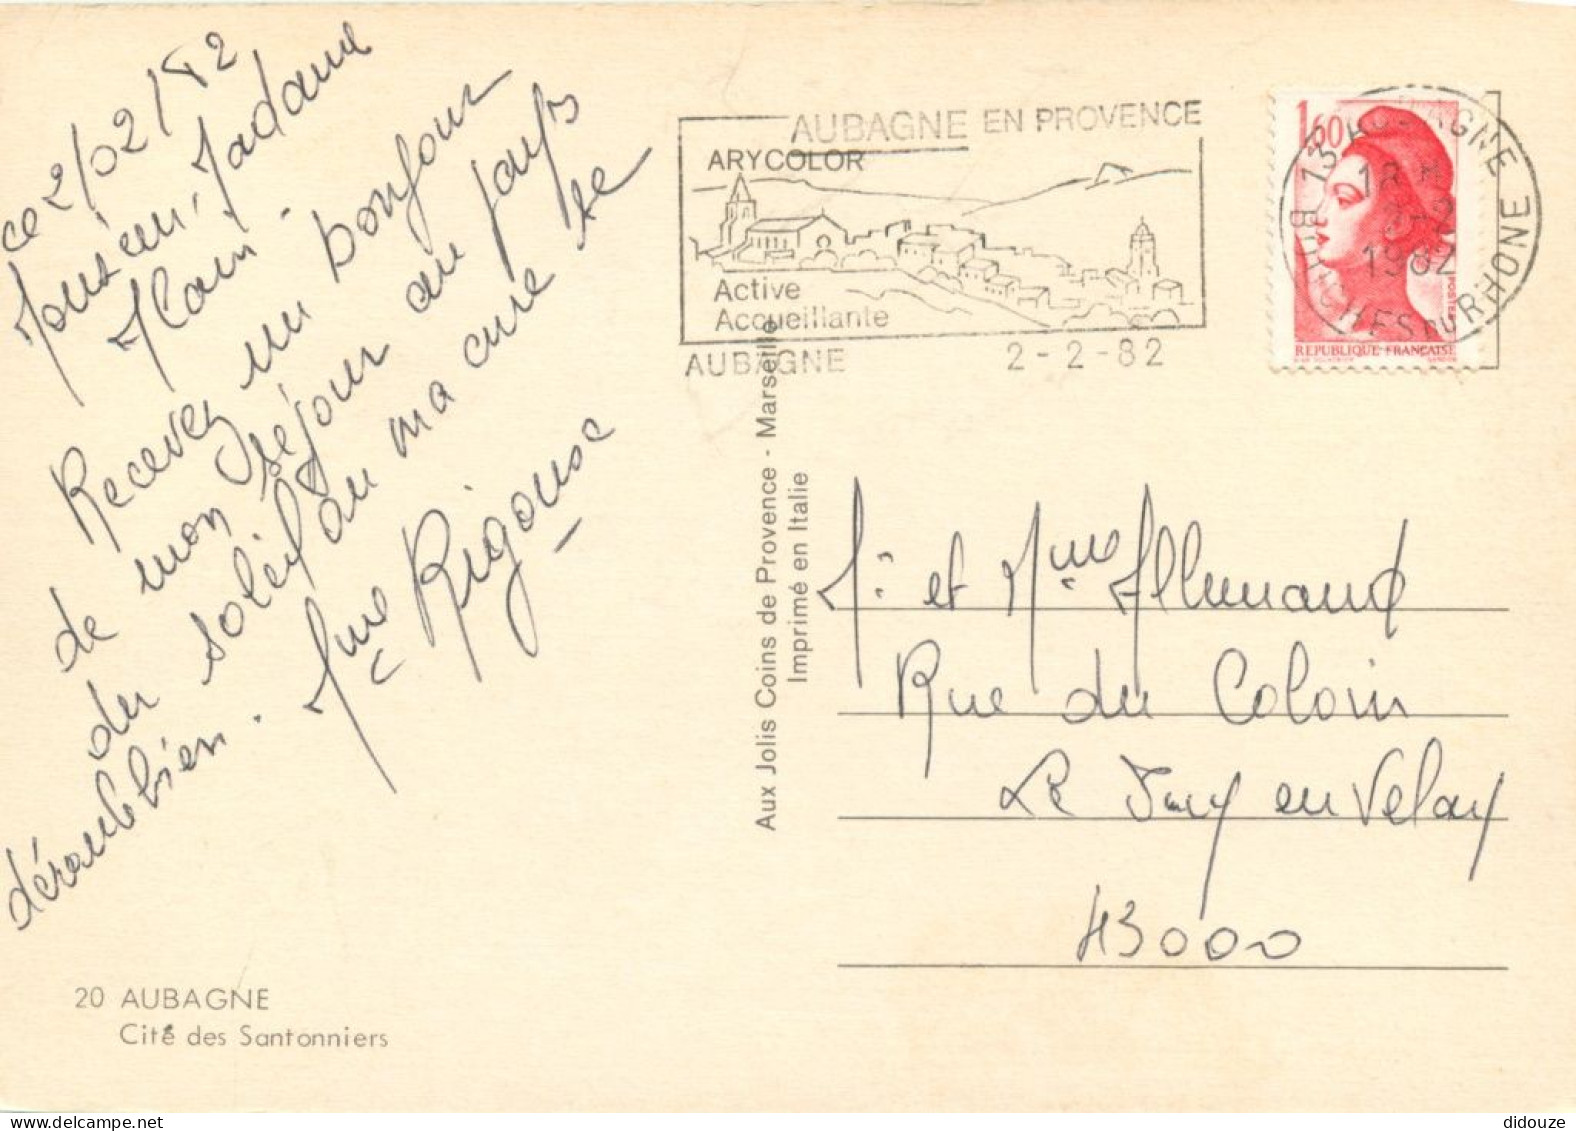 ce 2/02/82
Monsieur, Madame
Alain.
Recevez un bonjour
de mon séjour au pays
du soleil où ma cure se
déroule bien. Mme Rigousse
20 AUBAGNE
Cité des Santonniers
Aux Jolis Coins de Provence - Marseille
Imprimé en Italie
AUBAGNE EN PROVENCE
ARYCOLOR
Active
Accueillante
AUBAGNE 2-2-82
1,60
13 AUBAGNE
18 H
2-2
1982
BOUCHES DU RHONE
POSTES
REPUBLIQUE FRANÇAISE
Mr et Mme Allemand
Rue du Colovin
Le Puy en Velay
43000
didouze